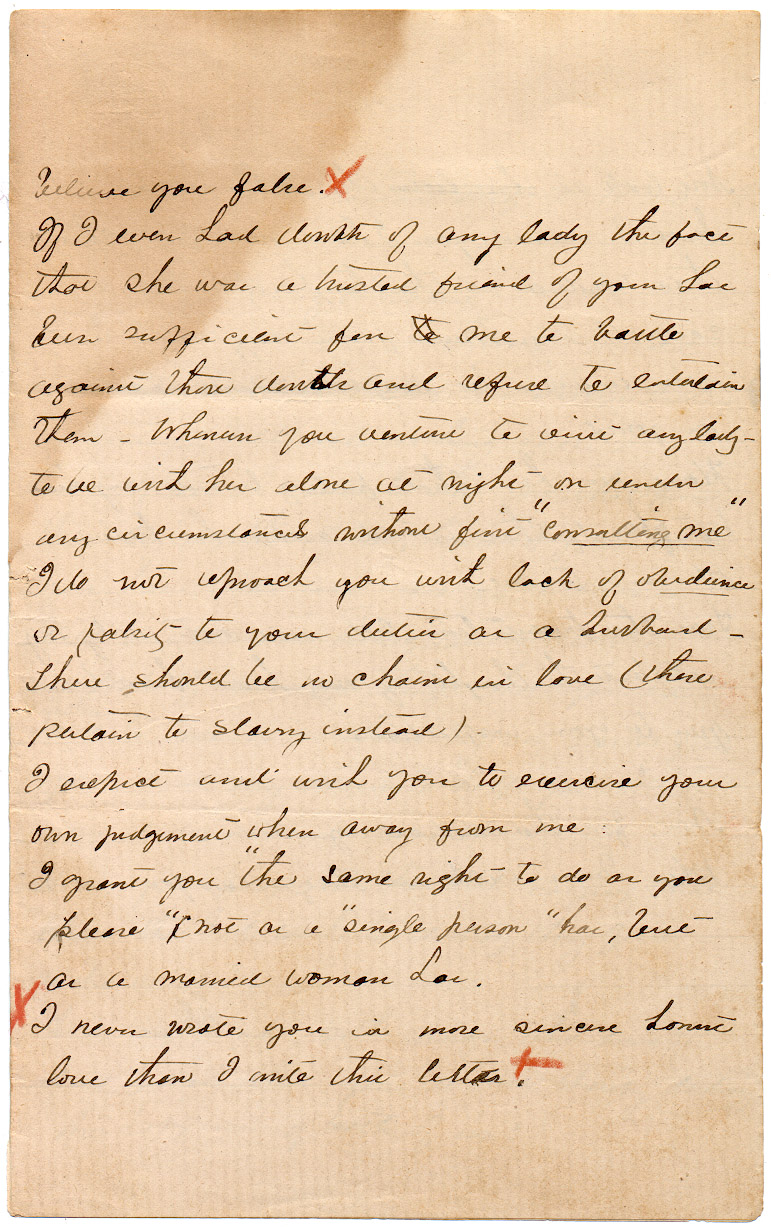 believe you false.
If I ever had doubts of any lady the fact
that she was a trusted friend of your has
been sufficient for me to battle
against those doubts and refuse to entertain
them - Whenever you venture to visit any lady -
to be with her alone at night or under
any circumstances without first "consulting me"
I do not reproach you with lack of obedience
or falsity to your duties as a husband -
There should be no chains in love (those
pertain to slavery instead).
I expect and wish you to exercise your
own judgement when away from me :
I grant you "the same right to do as you
please" (not as a "single person" has, but
as a married woman has.
I never wrote you in more sincere honest
love than I write this letter.